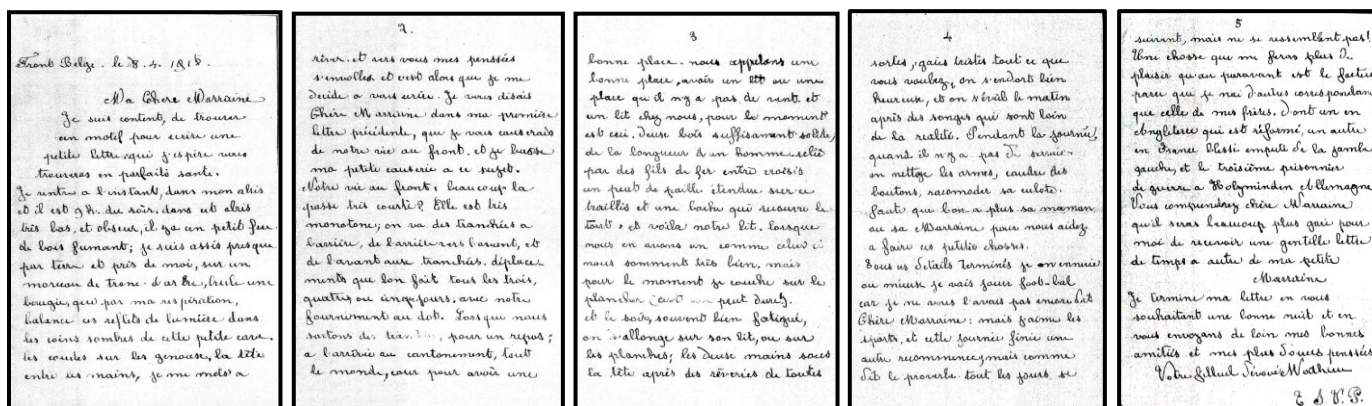 Front Belge. le 8. 4. 1918.
Ma Chère Marraine
Je suis content, de trouver
un motif pour ecrire une
petite lettre, qui j'espire vous
trouveras en parfaite santé.
Je rentre a l'instant, dans mon abris
et il est 9 h. du soir, dans cet abris
très bas, et obscur, il y a un petit feu
de bois fumant; je suis assis presque
par terre et près de moi, sur un
morceau de tronc d'arbre, brule une
bougie, qui par ma respiration,
balance ces reflets de lumière dans
les coins sombres de cette petite cave.
les coudes sur les genoux, la tête
entre les mains, je me mets a
2.
rêver. et vers vous mes pensées
s'envolles et c'est alors que je me
decide a vous ecrire. Je vous disais
Chère Marraine dans ma première
lettre précidente, que je vous causerais
de notre vie au front. et je
ma petite causerie a ce sujet.
Notre vie au front; beaucoup la
passe très courte? Elle est très
monotone; on va des tranchées a
l'arrière, de l'arrière vers l'avant, et
de l'avant aux tranchées. déplace
ments que lon fait tous les trois,
quatres ou cinqs jours. avec notre
fourniment au dot. Lorsque nous
sortons des pour un repos;
a l'arrivée au cantonement, tout
le monde, cour pour avoir une
3
bonne place. nous appelons une
bonne place, avoir un litt ou une
place qu il n'y a pas de vent. et
un lit chez nous, pour le moment
est ceci. Deux bois suffisament solide,
de la longueur d'un homme. relié
par des fils de fer entre croisés
un peut de paille étendue sur ce
traillis et une bache qui recouvre le
tout, et voilà notre lit. Lorsque
nous en avons un comme celui ci
nous somment très bien, mais
pour le moment je couche sur le
plancher c'est un peut dure).
et le soir, souvent bien fatigué,
on s'allonge sur son lit, ou sur
les planches; les deux mains sous
la tête après des rêveries de toutes
4
sortes, gaies tristes tout ce que
vous voulez, on s'endort bien
heureux, et on s'éveil le matin
après des songes qui sont loin
de la realité. Pendant la journée,
quand il n'y a pas de service
on nettoge les armes, coudre des
boutons, racomoder sa culote.
faute que lon a plus sa maman
ou sa Marraine pour nous aidez
a faire ces petites chosses.
Tous ces details terminés je m'ennuie
ou mieux je vais jouer foot-bal
car je ne vous l'avais pas encore dit
Chère Marraine: mais j'aime les
sports, et cette journée finie une
autre recommence, mais comme
dit le proverbe tout les jours se
5
suivent, mais ne se ressemblent pas!
Une chose que me feras plus de
plaisir qu au paravant est le facteur
parce que je n'ai d'autres correspondances
que celle de mes frères. D'ont un en
Angleterre qui est réformé, un autre
en France blessé emputé de la jambe
gauche, et le troisième prisonnier
de guerre a Holzminden Allemagne
Vous comprendrez chère Marraine
qu'il seras beaucoup plus gaie pour
moi de recevoir une gentille lettre
de temps a autre de ma petite
Marraine
Je termine ma lettre en vous
souhaitant une bonne nuit et en
vous envoyans de loin mes bonnes
amitiés et mes plus douces pensées
Votre filleul
T. S. V. P.